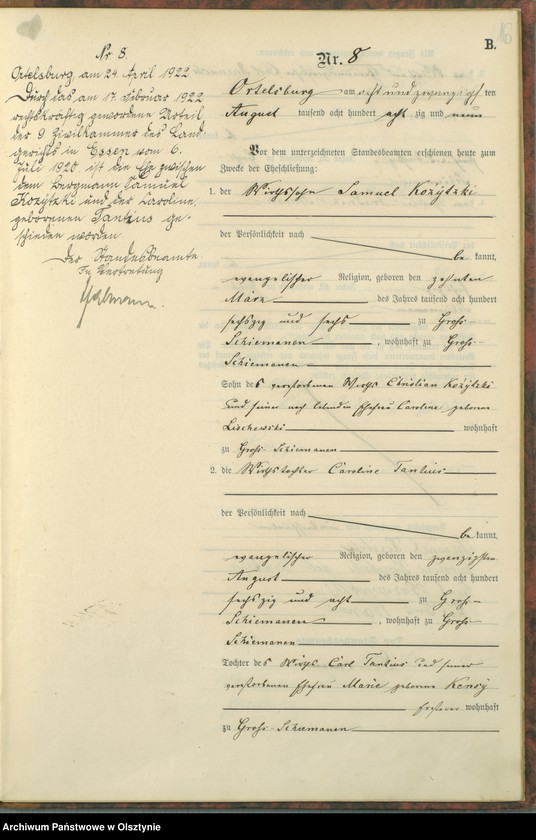 B.
Nr. 8.
Ortelsburg, am 24. April 1922.
Durch das am 17. Februar 1922
rechtskräftig gewordene Urteil
der 9 Zivilkammer des Land
gerichts in Essen vom 6.
Juli 1920 ist die Ehe zwischen
dem Bergmann Samuel
Kozytzki und der Karoline,
geborenen Tantius ge-
schieden worden
Der Standesbeamte
In Vertretung
Nr. 8
Ortelsburg am acht und zwanzigsten
August tausend acht hundert achtzig und neun
Vor dem unterzeichneten Standesbeamten erschienen heute zum
Zwecke der Eheschließung:
1. der Wirthssohn Samuel Kozytzki
der Persönlichkeit nach
be kannt,
evangelischer Religion, geboren den zehnten
März des Jahres tausend acht hundert
sechszig und sechs zu Groß-
Schiemanen, wohnhaft zu Groß-
Schiemanen
Sohn des verstorbenen Wirths Christian Kozytzki
und seiner noch lebenden Ehefrau Caroline geborene
Lischewski wohnhaft
zu Groß-Schiemanen
2. die Wirthstochter Caroline Tantius
der Persönlichkeit nach
be kannt,
evangelischer Religion, geboren den zwanzigsten
August des Jahres tausend acht hundert
sechszig und acht zu Groß-
Schiemanen, wohnhaft zu Groß-
Schiemanen
Tochter des Wirths Carl Tantius und seiner
verstorbenen Ehefrau Marie geborene Kensy
Ersterer wohnhaft
zu Groß-Schiemanen
Archiwum Państwowe w Olsztynie